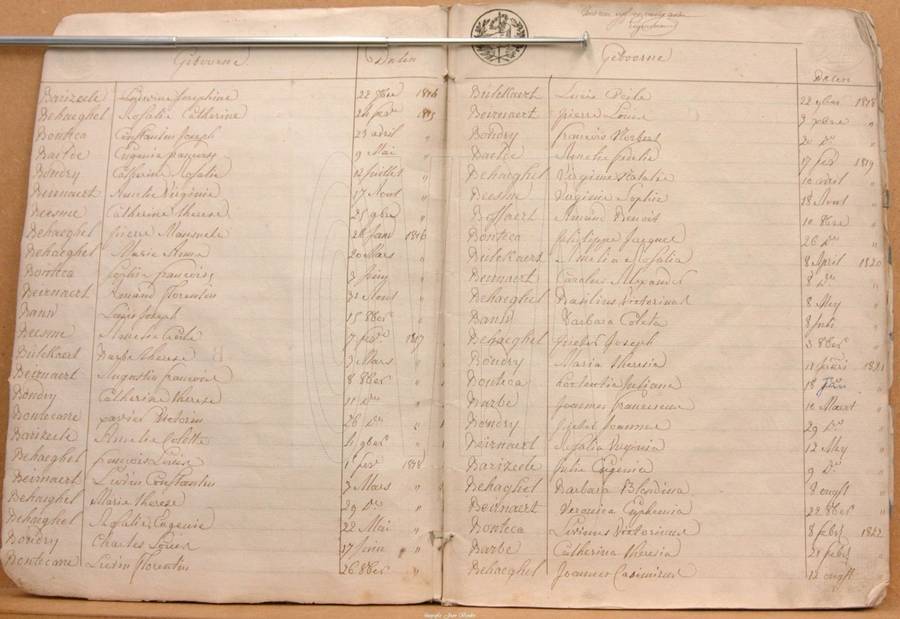 Geboorne Daten
Barizeele Ludovica Josephine 22 8ber 1814
Behaeghel Rosalie Catherine 24 fevr 1815
Bontica Constantin Joseph 23 avril "
Baelde Eugenie 9 Mai "
Bondry Catherine Rosalie 12 Juillet "
Beirnaert Amelie Virginie 17 Aout "
Deesme Catherine Therese 25 9bre "
Behaeghel Pierre Mansuete 28 Janv 1816
Behaeghel Marie Anna 20 Mars "
Bontica Sophia françoise 3 Juny "
Beirnaert Armand Florentin 31 Aout "
Bann Louis Joseph 15 8ber "
Deesme Amelia Cecile 7 fevr 1817
Bulckaert Barbe Therese 3 Mars "
Beirnaert Augustin francois 8 8ber "
Bondry Catherine Therese 11 do "
Bontecane Xavier Victorin 26 do "
Barizeele Amelie Colette 4 9ber "
Behaeghel françois Louise 1r fevr 1818
Beirnaert Livin Constantin 7 Mars "
Behaeghel Marie Therese 29 do "
Behaeghel Rosalie Eugenie 22 Mai "
Bondry Charles Louis 17 Juin "
Bontecane Livin Florentin 26 8ber "
Geboorne Daten
Bulckaert Lucie Cecile 22 1818
Beirnaert Pierre Louis 7 "
Bondry francois Norbert 20 do "
Baelde Amelie fidelie 17 fev 1819
Behaeghel Virginie Natalie 10 avril "
Deesme Virginie Sophie 18 Aout "
Amand Benoit 10 8bre "
Bontica Philippe Jacques 26 do "
Bulckaert Amelia Rosalia 8 April 1820
Beirnaert Carolus Alexand 8 do "
Behaeghel Basilius Victorinus 8 Mey "
Bann Barbara Coleta 8 Juli "
Behaeghel Joseph 3 8ber "
Bondry Maria Theresia 11 1821
Bontica Hortentia Juliane 18 "
Barbe Joannes Franciscus 10 Maert "
Bondry Joannes 29 do "
Beirnaert Rosalia Virginia 12 Mey "
Barizeele Julie Eugenia 9 do "
Behaghel Barbara Blondina 8 ougst "
Beirnaert Veronica Euphemia 22 8ber "
Bontica Livinus Victorinus 8 febr 1822
Barbe Catherina Theresia 21 febr "
Behaeghel Joannes Casimirus 12 ougst "